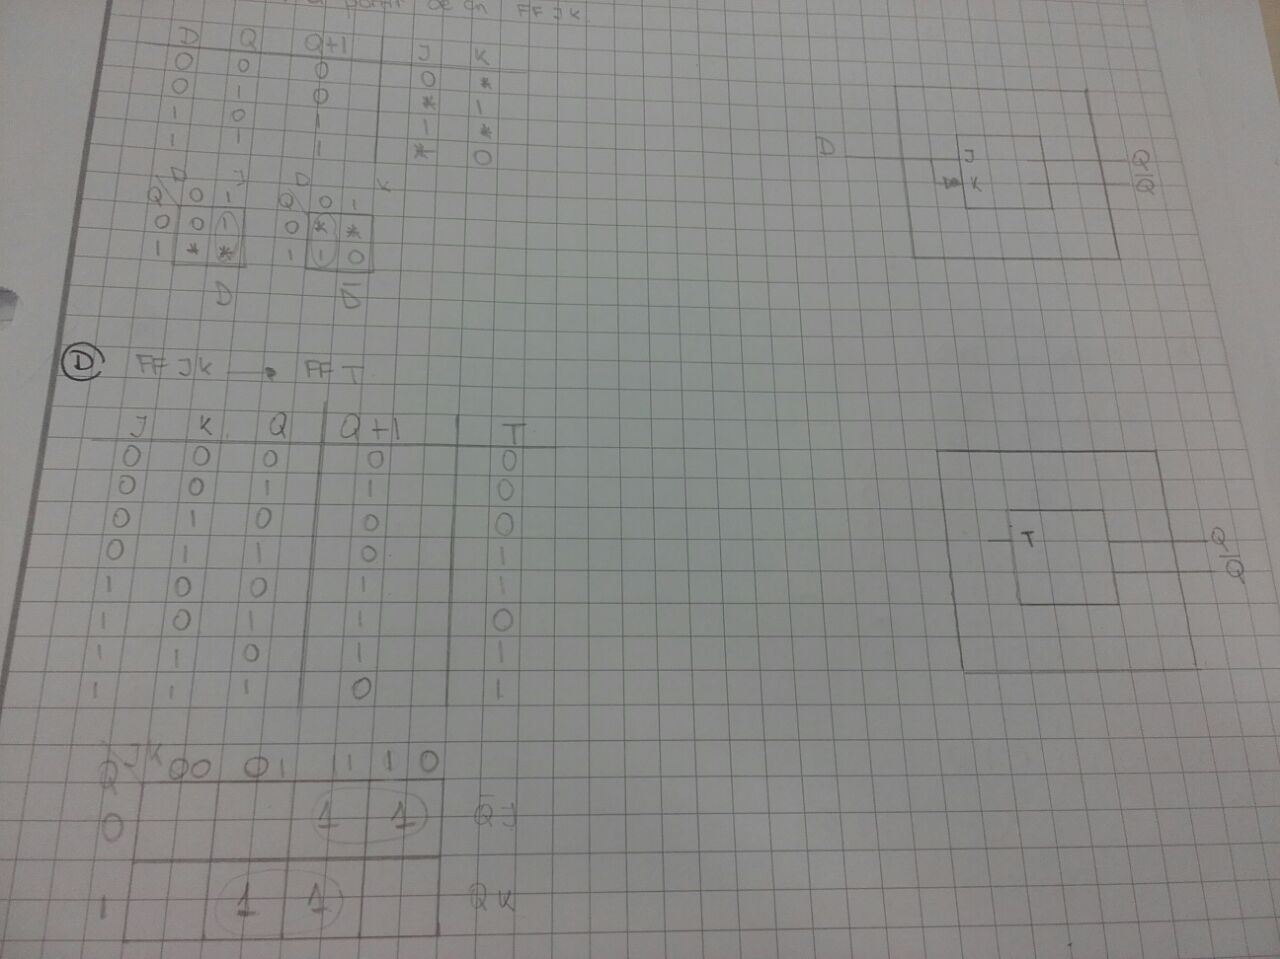 a partir de un FF JK
D Q Q+1 J K
0 0 0 0 *
0 1 0 * 1
1 0 1 1 *
1 1 1 * 0
D J D K
Q 0 1 Q 0 1
0 0 1 0 * *
1 * * 1 1 0
D D̅
D J K Q Q̅
D FF JK → FF T
J K Q Q+1 T
0 0 0 0 0
0 0 1 1 0
0 1 0 0 0
0 1 1 0 1
1 0 0 1 1
1 0 1 1 0
1 1 0 1 1
1 1 1 0 1
T Q Q̅
Q JK 00 01 11 10
0 1 1 Q̅J
1 1 1 QK